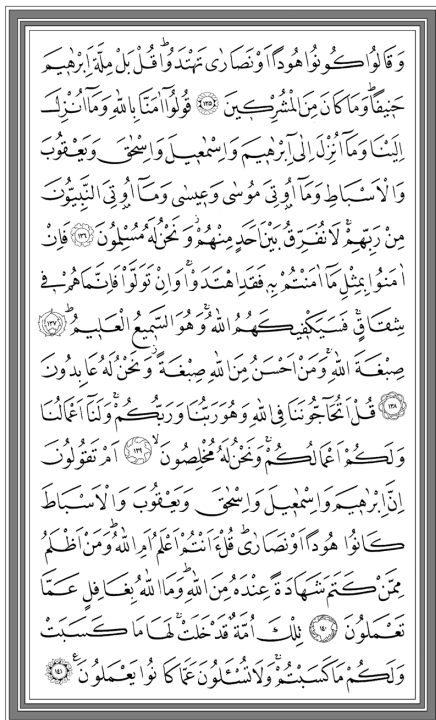 وَقَالُوا كُونُوا هُودًا اَوْ نَصَارٰى تَهْتَدُواۜ قُلْ بَلْ مِلَّةَ اِبْرٰه۪يمَ
حَن۪يفًاۜ وَمَا كَانَ مِنَ الْمُشْرِك۪ينَ ﴿١٣٥﴾ قُولُٓوا اٰمَنَّا بِاللّٰهِ وَمَٓا اُنْزِلَ
اِلَيْنَا وَمَٓا اُنْزِلَ اِلٰٓى اِبْرٰه۪يمَ وَاِسْمٰع۪يلَ وَاِسْحٰقَ وَيَعْقُوبَ
وَالْاَسْبَاطِ وَمَٓا اُو۫تِيَ مُوسٰى وَع۪يسٰى وَمَٓا اُو۫تِيَ النَّبِيُّونَ
مِنْ رَبِّهِمْۚ لَا نُفَرِّقُ بَيْنَ اَحَدٍ مِنْهُمْۘ وَنَحْنُ لَهُ مُسْلِمُونَ ﴿١٣٦﴾ فَاِنْ
اٰمَنُوا بِمِثْلِ مَٓا اٰمَنْتُمْ بِه۪ فَقَدِ اهْتَدَوْاۚ وَاِنْ تَوَلَّوْا فَاِنَّمَا هُمْ ف۪ي
شِقَاقٍۚ فَسَيَكْف۪يكَهُمُ اللّٰهُۚ وَهُوَ السَّم۪يعُ الْعَل۪يمُۜ ﴿١٣٧﴾
صِبْغَةَ اللّٰهِۚ وَمَنْ اَحْسَنُ مِنَ اللّٰهِ صِبْغَةًۘ وَنَحْنُ لَهُ عَابِدُونَ
﴿١٣٨﴾ قُلْ اَتُحَٓاجُّونَنَا فِي اللّٰهِ وَهُوَ رَبُّنَا وَرَبُّكُمْۚ وَلَنَٓا اَعْمَالُنَا
وَلَكُمْ اَعْمَالُكُمْۚ وَنَحْنُ لَهُ مُخْلِصُونَۙ ﴿١٣٩﴾ اَمْ تَقُولُونَ
اِنَّ اِبْرٰه۪يمَ وَاِسْمٰع۪يلَ وَاِسْحٰقَ وَيَعْقُوبَ وَالْاَسْبَاطَ
كَانُوا هُودًا اَوْ نَصَارٰىۜ قُلْ ءَاَنْتُمْ اَعْلَمُ اَمِ اللّٰهُۜ وَمَنْ اَظْلَمُ
مِمَّنْ كَتَمَ شَهَادَةً عِنْدَهُ مِنَ اللّٰهِۜ وَمَا اللّٰهُ بِغَافِلٍ عَمَّا
تَعْمَلُونَ ﴿١٤٠﴾ تِلْكَ اُمَّةٌ قَدْ خَلَتْۚ لَهَا مَا كَسَبَتْ
وَلَكُمْ مَا كَسَبْتُمْۚ وَلَا تُسْـَٔلُونَ عَمَّا كَانُوا يَعْمَلُونَ۟ ﴿١٤١﴾